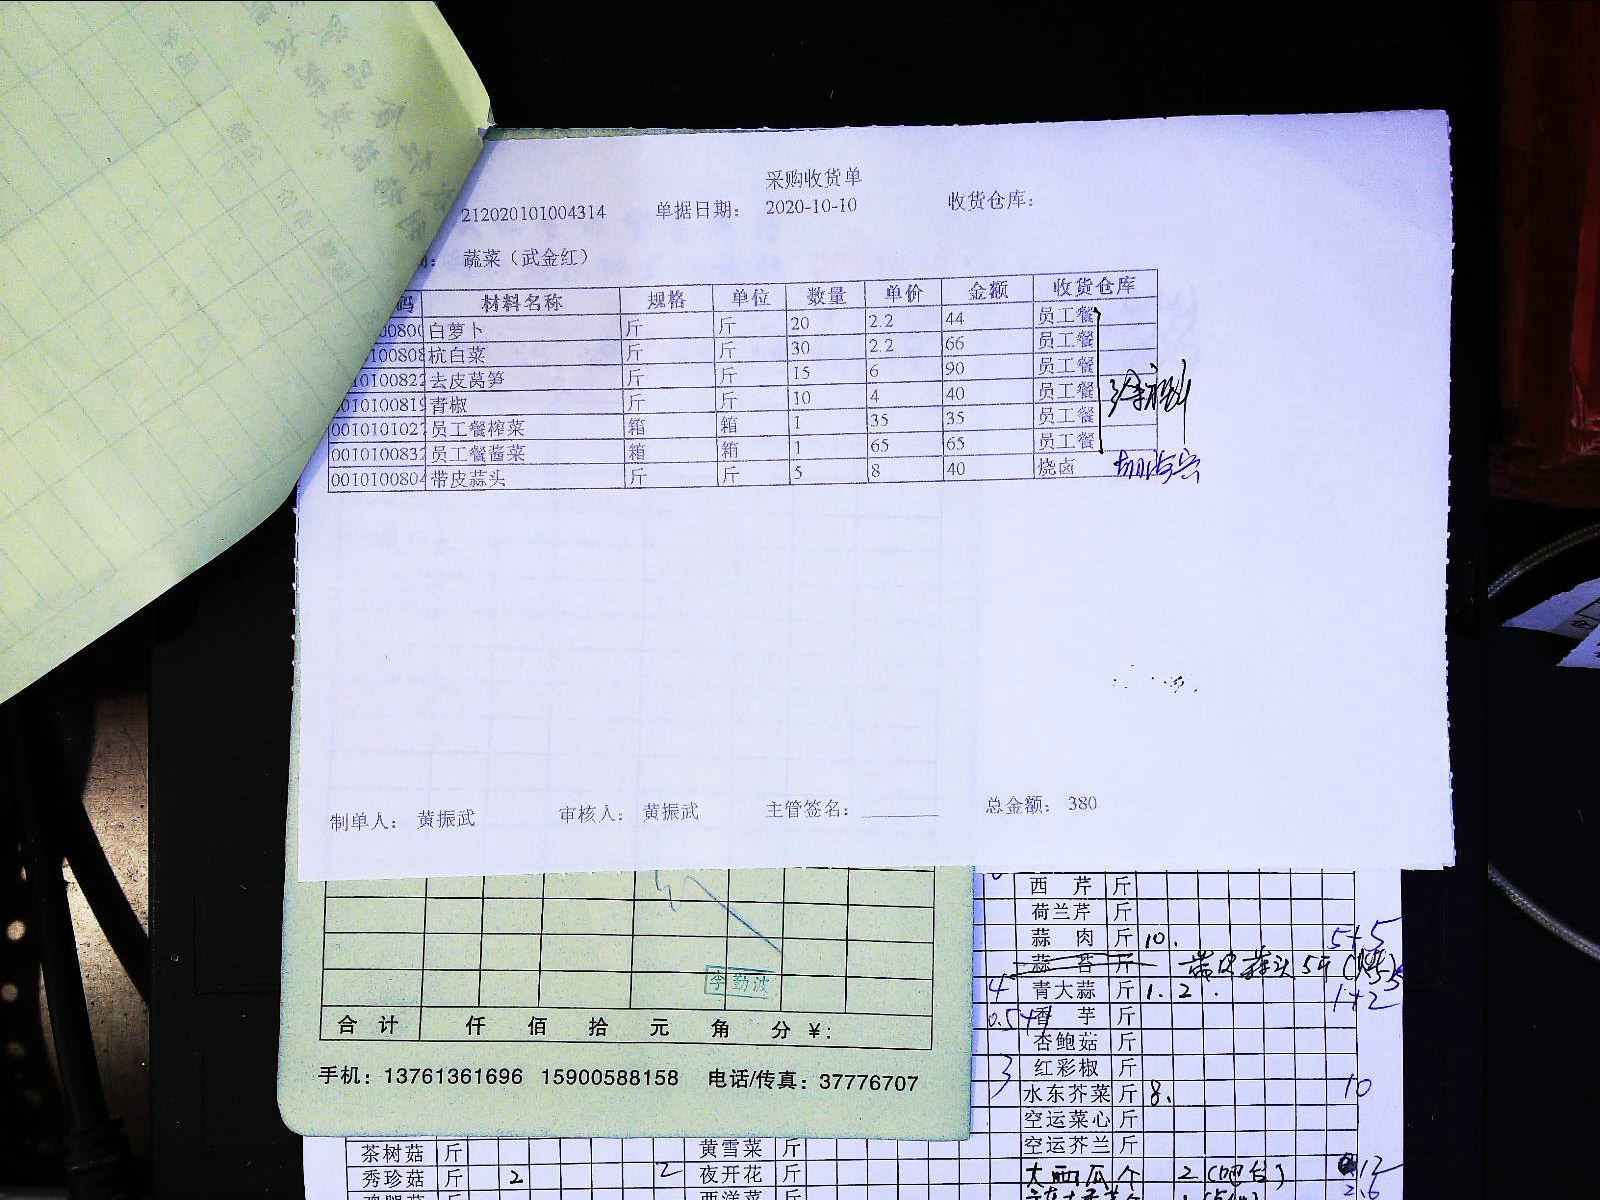 采购收货单
212020101004314 单据日期： 2020-10-10 收货仓库：
蔬菜（武金红）
码 材料名称 规格 单位 数量 单价 金额 收货仓库
白萝卜 斤 斤 20 2.2 44 员工餐
100808 杭白菜 斤 斤 30 2.2 66 员工餐
010100822 去皮莴笋 斤 斤 15 6 90 员工餐
010100819 青椒 斤 斤 10 4 40 员工餐
0010101027 员工餐榨菜 箱 箱 1 35 35 员工餐
0010100832 员工餐酱菜 箱 箱 1 65 65 员工餐
0010100804 带皮蒜头 斤 斤 5 8 40 烧卤
制单人： 黄振武 审核人： 黄振武 主管签名： 总金额： 380
西芹 斤
荷兰芹 斤
蒜肉 斤 10. 5+5
蒜苔 斤 带皮蒜头5斤
4 青大蒜 斤 1.2. 1+2
李勤波
香芋 斤
合计 仟 佰 拾 元 角 分 ¥:
杏鲍菇 斤
3 红彩椒 斤
手机：13761361696 15900588158 电话/传真：37776707
水东芥菜 斤 8. 10
空运菜心 斤
空运芥兰 斤
茶树菇 斤 黄雪菜 斤
秀珍菇 斤 2 2 夜开花 斤 大西瓜 个 2(吧台) 12
西洋菜 斤 2.6